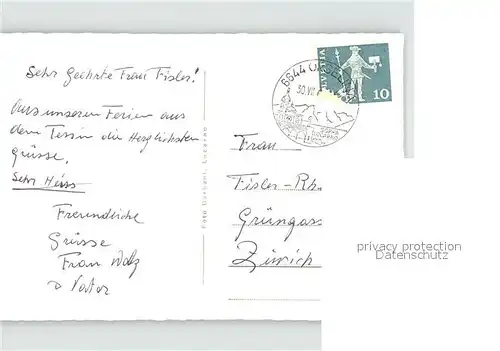 Sehr Geehrte Frau Fisler!
Aus unseren Ferien aus
dem Tessin die Herzlichsten
Grüsse.
Sehr Heiss
Freundliche
Grüsse
Frau Walz
Vater
Foto Garbani, Locarno
HELVETIA
10
6644 ORSELINA
30.VII
Frau
Fisler-Rh
Grüngas
Zürich
privacy protection
Datenschutz